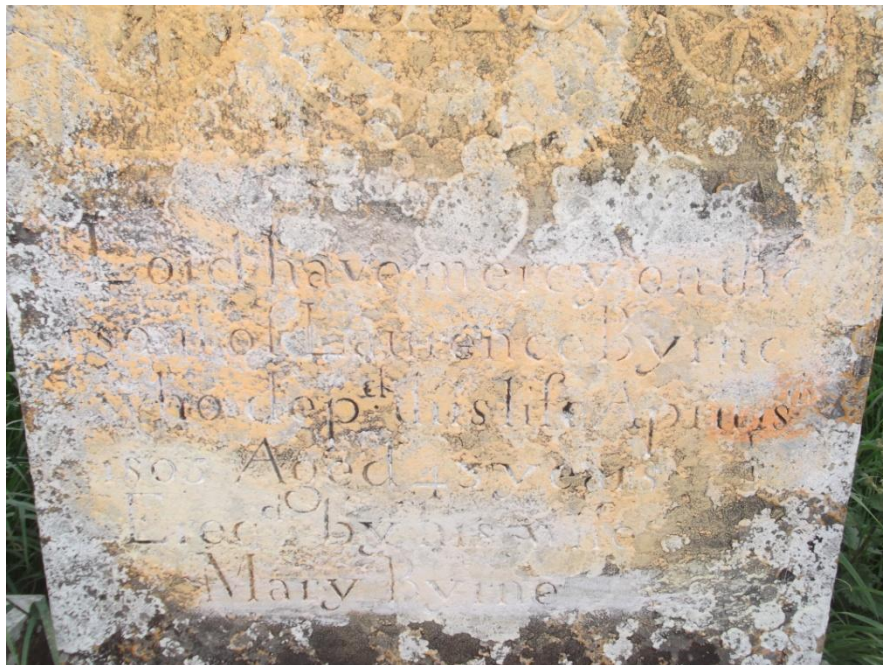 IHS
Lord have mercy on the
soul of Laurence Byrne
who dep.td this life April
Aged years
Erec.d by his wife
Mary Byrne